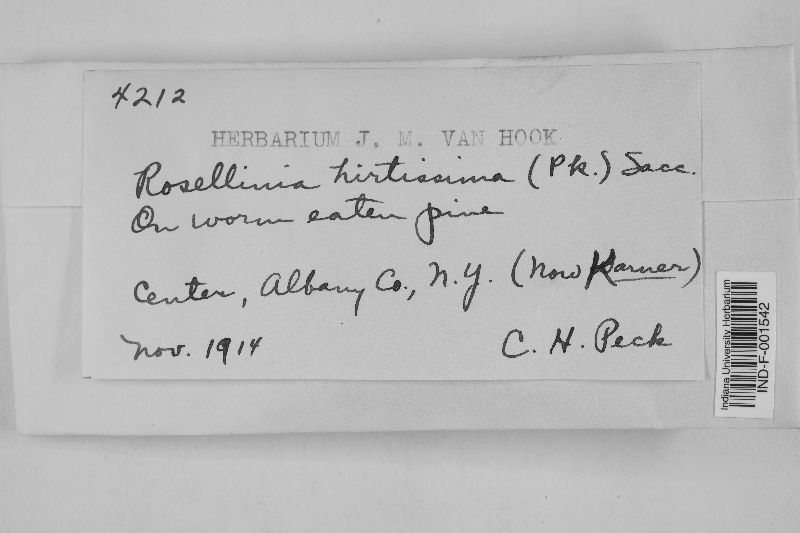 4212
HERBARIUM J. M. VAN HOOK
Rosellinia hirtissima (Pk.) Sacc.
On worm eaten pine
Center, Albany Co., N.Y. (Now Karner)
Nov. 1914
C. H. Peck
Indiana University Herbarium
IND-F-001542